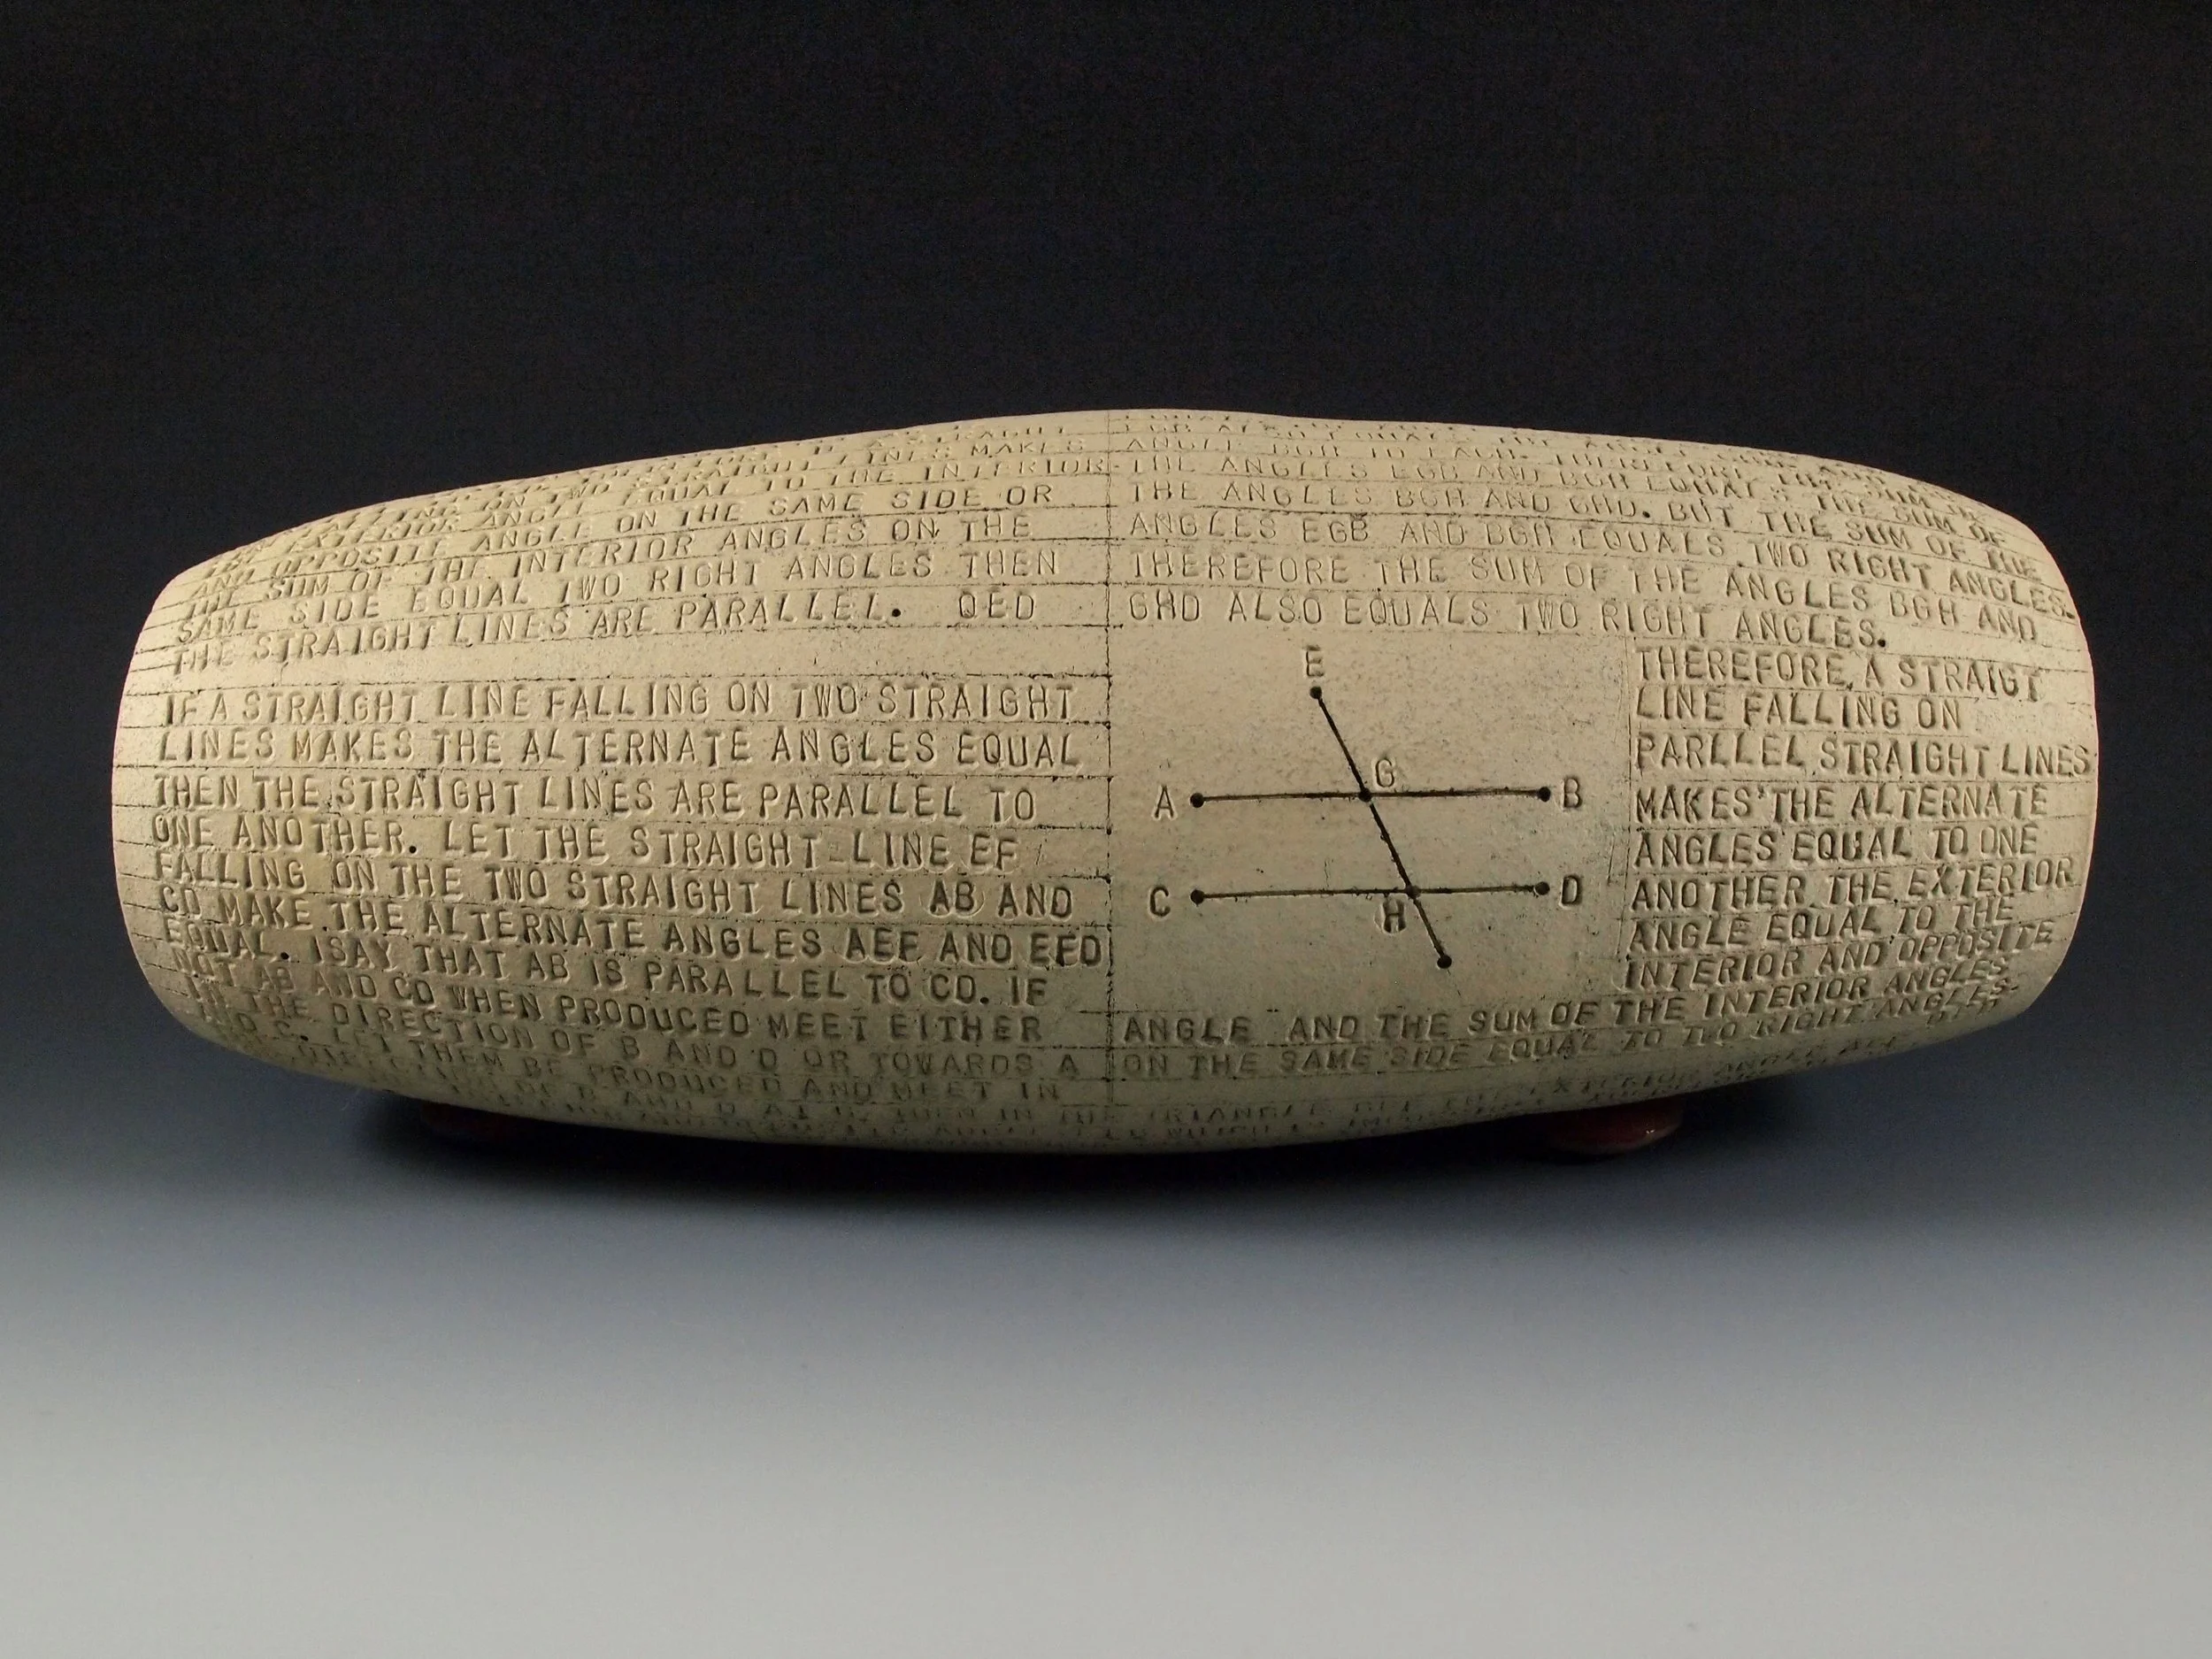 LINES MAKES
EQUAL TO THE INTERIOR
AND OPPOSITE ANGLE ON THE SAME SIDE OR
THE SUM OF THE INTERIOR ANGLES ON THE
SAME SIDE EQUAL TWO RIGHT ANGLES THEN
THE STRAIGHT LINES ARE PARALLEL. QED
IF A STRAIGHT LINE FALLING ON TWO STRAIGHT
LINES MAKES THE ALTERNATE ANGLES EQUAL
THEN THE STRAIGHT LINES ARE PARALLEL TO
ONE ANOTHER. LET THE STRAIGHT LINE EF
FALLING ON THE TWO STRAIGHT LINES AB AND
CD MAKE THE ALTERNATE ANGLES AEF AND EFD
EQUAL. I SAY THAT AB IS PARALLEL TO CD. IF
NOT AB AND CD WHEN PRODUCED MEET EITHER
IN THE DIRECTION OF B AND D OR TOWARDS A
AND C. LET THEM BE PRODUCED AND MEET IN
OF B AND D AT G. THEN IN THE TRIANGLE GEF THE EXTERIOR ANGLE AEF
ANGLE BGH TO EACH. THEREFORE THE SUM OF
THE ANGLES EGB AND BGH EQUALS THE SUM OF
THE ANGLES BGH AND GHD. BUT THE SUM OF THE
ANGLES EGB AND BGH EQUALS TWO RIGHT ANGLES.
THEREFORE THE SUM OF THE ANGLES BGH AND
GHD ALSO EQUALS TWO RIGHT ANGLES.
E
G
A
B
C
D
H
THEREFORE, A STRAIGT
LINE FALLING ON
PARLLEL STRAIGHT LINES
MAKES THE ALTERNATE
ANGLES EQUAL TO ONE
ANOTHER, THE EXTERIOR
ANGLE EQUAL TO THE
INTERIOR AND OPPOSITE
ANGLE AND THE SUM OF THE INTERIOR ANGLES
ON THE SAME SIDE EQUAL TO TWO RIGHT ANGLES.